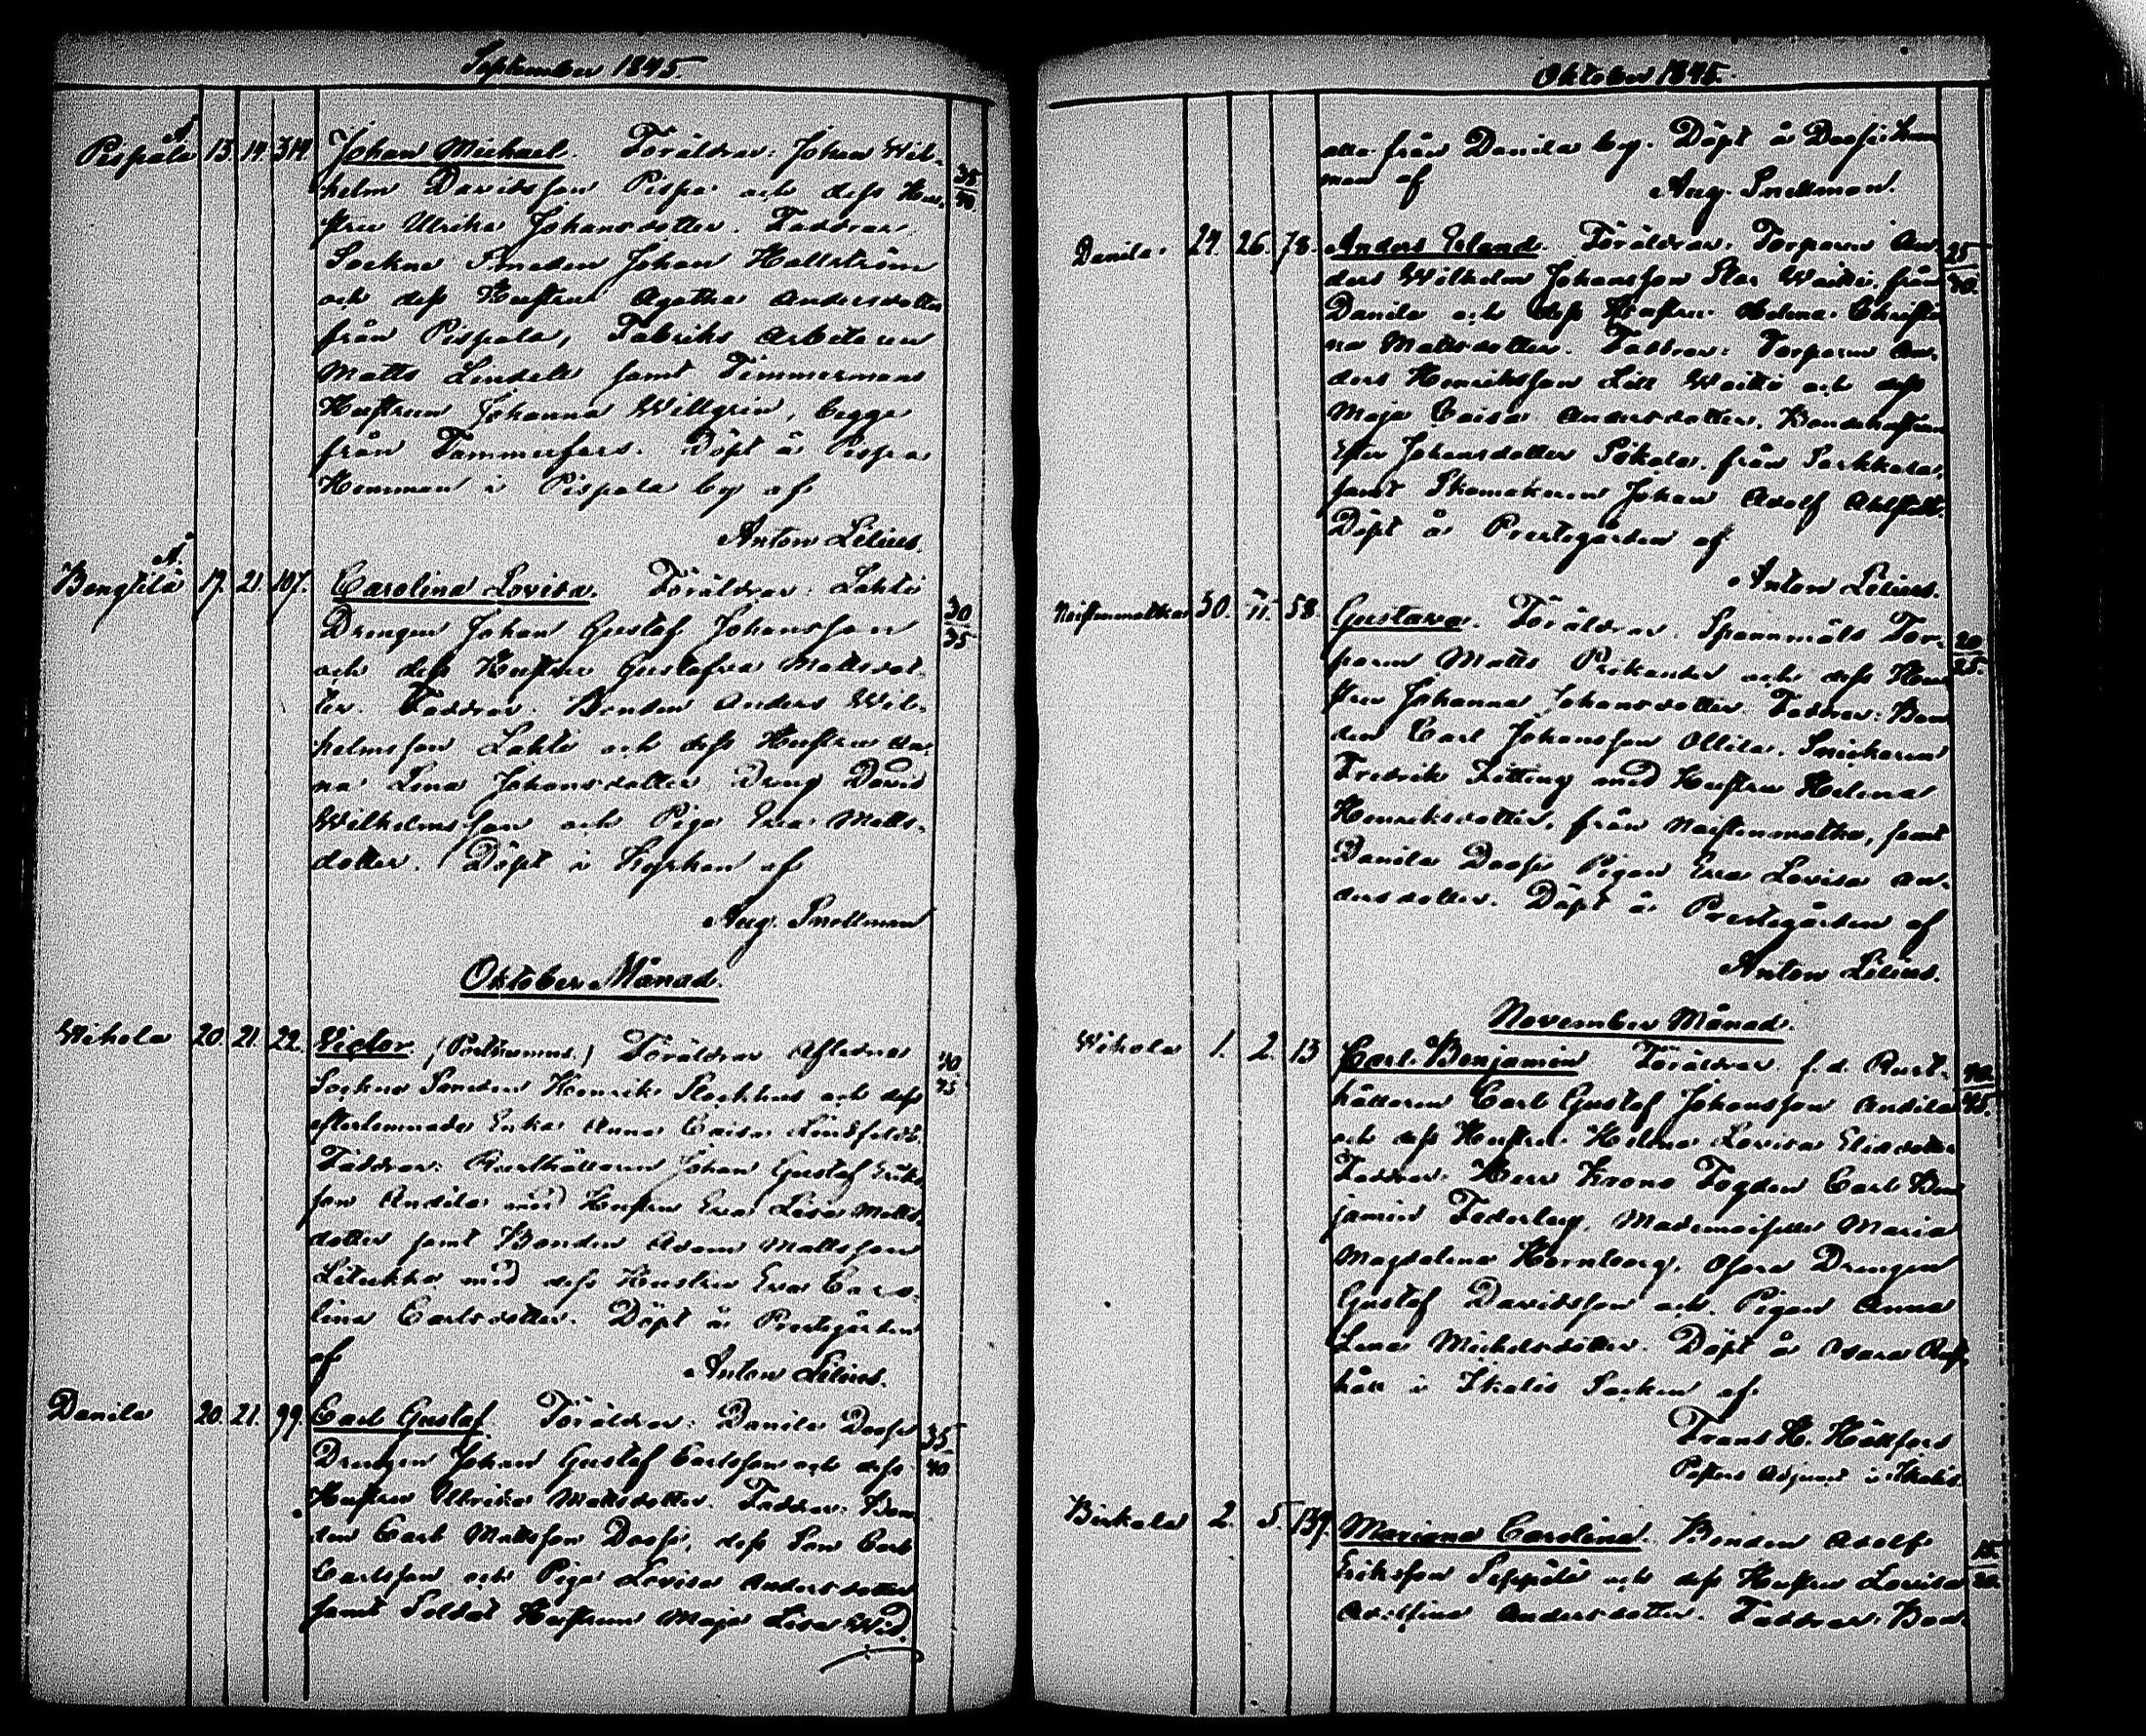 September 1845.
Pispala 13. 14. 314. Johan Michael. Föräldrar: Johan Wil- 35/40.
helm Davidsson Pispa och dess Hus-
tru Ulrika Johansdotter. Faddrar
Sockne Smeden Johan Hallström
och dess Hustru Agatha Andersdotter
från Pispala, Fabriks Arbetaren
Matts Lindell samt Timmermans
Hustrun Johanna Willgrén, begge
från Tammerfors. Döpt å Pispa
Hemman i Pispala by af
Anton Lilius.
Bengtilä 17. 21. 107. Carolina Lovisa. Föräldrar: Lahti 30/35
Drengen Johan Gustaf Johansson
och dess Hustru Gustafva Mattsdot-
ter. Faddrar. Bonden Anders Wil-
helmsson Lahti och dess Hustru An-
na Lena Johansdotter Dreng David
Wilhelmsson och Piga Eva Matts-
dotter. Döpt i Kyrkan af
Aug. Snellman
Oktober Månad.
Wihola 20. 21. 22. Victor. (Posthumus.) Föräldrar Afledna 40/45
Sockne Smeden Henrik och dess
efterlemnade Enka Anna Caisa Lindfeldt.
Faddrar: Rusthållaren Johan Gustaf Eriks-
son Andila med Hustru Eva Lisa Matts-
dotter samt Bonden Adam Mattsson
Liukka med dess Hustru Eva Caro-
lina Carlsdotter. Döpt å Prestegården
af Anton Lilius.
Danila 20. 21. 99. Carl Gustaf. Föräldrar: Danila Doose 35/40
Drengen Johan Gustaf Carlsson och dess
Hustru Ulrika Mattsdotter. Faddrar: Bon-
den Carl Mattsson Doose, dess Son Carl
Carlsson och Piga Lovisa Andersdotter
samt Soldat Hustrun Maja Lisa Wid.
Oktober 1845.
från Danila by. Döpt å Doose Hem-
man af Aug. Snellman.
Danila 24. 26. 78. Anders Erland. Föräldrar. Torparen An- 25/30.
ders Wilhelm Johansson Stor Waitti från
Danila och dess Hustru Helena Christi-
na Mattsdotter. Faddrar: Torparen An-
ders Henriksson Lill Waitti och dess
Maja Caisa Andersdotter, Bondehustrun
Ester Johansdotter Pökala, från Sarkkola,
samt Skomakaren Johan Adolf Ahlstedt.
Döpt å Prestegården af
Anton Lilius.
Naistenmatka 30. 11. 58. Gustava. Föräldrar. Spannmåls Tor- 20/25.
paren Matts Rekander och dess Hus-
tru Johanna Johansdotter. Faddrar: Bon-
den Carl Johansson Ollila. Snickaren
Fredrik Fitting med Hustru Helena
Henriksdotter, från Naistenmatka, samt
Danila Doose Pigan Eva Lovisa An-
dersdotter. Döpt å Prestegården af
Anton Lilius.
November Månad.
Wihola 1. 2. 13 Carl Benjamin Föräldrar. f. d. Rust- 40/45.
hållaren Carl Gustaf Johansson Andila
och dess Hustru Helena Lovisa Eliedotter
Faddrar. Herr Krono Fogden Carl Ben-
jamin Federley, Mademoiselle Maria
Magdalena Hornborg, Osara Drengen
Gustaf Davidsson och Pigan Anna
Lena Michelsdotter. Döpt å Osara Rust-
håll i Ikalis Socken af
Frans H. Hällfors
Pastors Adjunct i Ikalis
Birkala 2. 5. 139. Mariana Carolina. Bonden Adolf
Eriksson Seppälä och dess Hustru Lovisa
Adolfina Andersdotter. Faddrar: Bon-